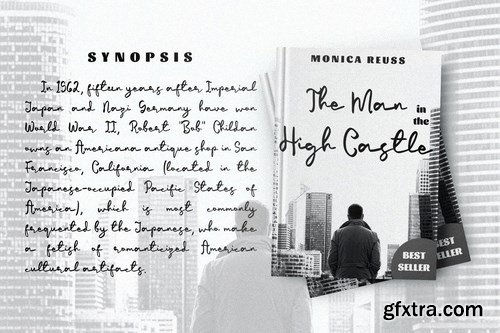 SYNOPSIS
In 1962, fifteen years after Imperial
Japan and Nazi Germany have won
World War II, Robert "Bob" Childan
owns an Americana antique shop in San
Francisco, California (located in the
Japanese-occupied Pacific States of
America), which is most commonly
frequented by the Japanese, who make
a fetish of romanticized American
cultural artifacts.
MONICA REUSS
The Man in
the
High Castle
BEST
SELLER
BEST
SELLER
gfxtra.com